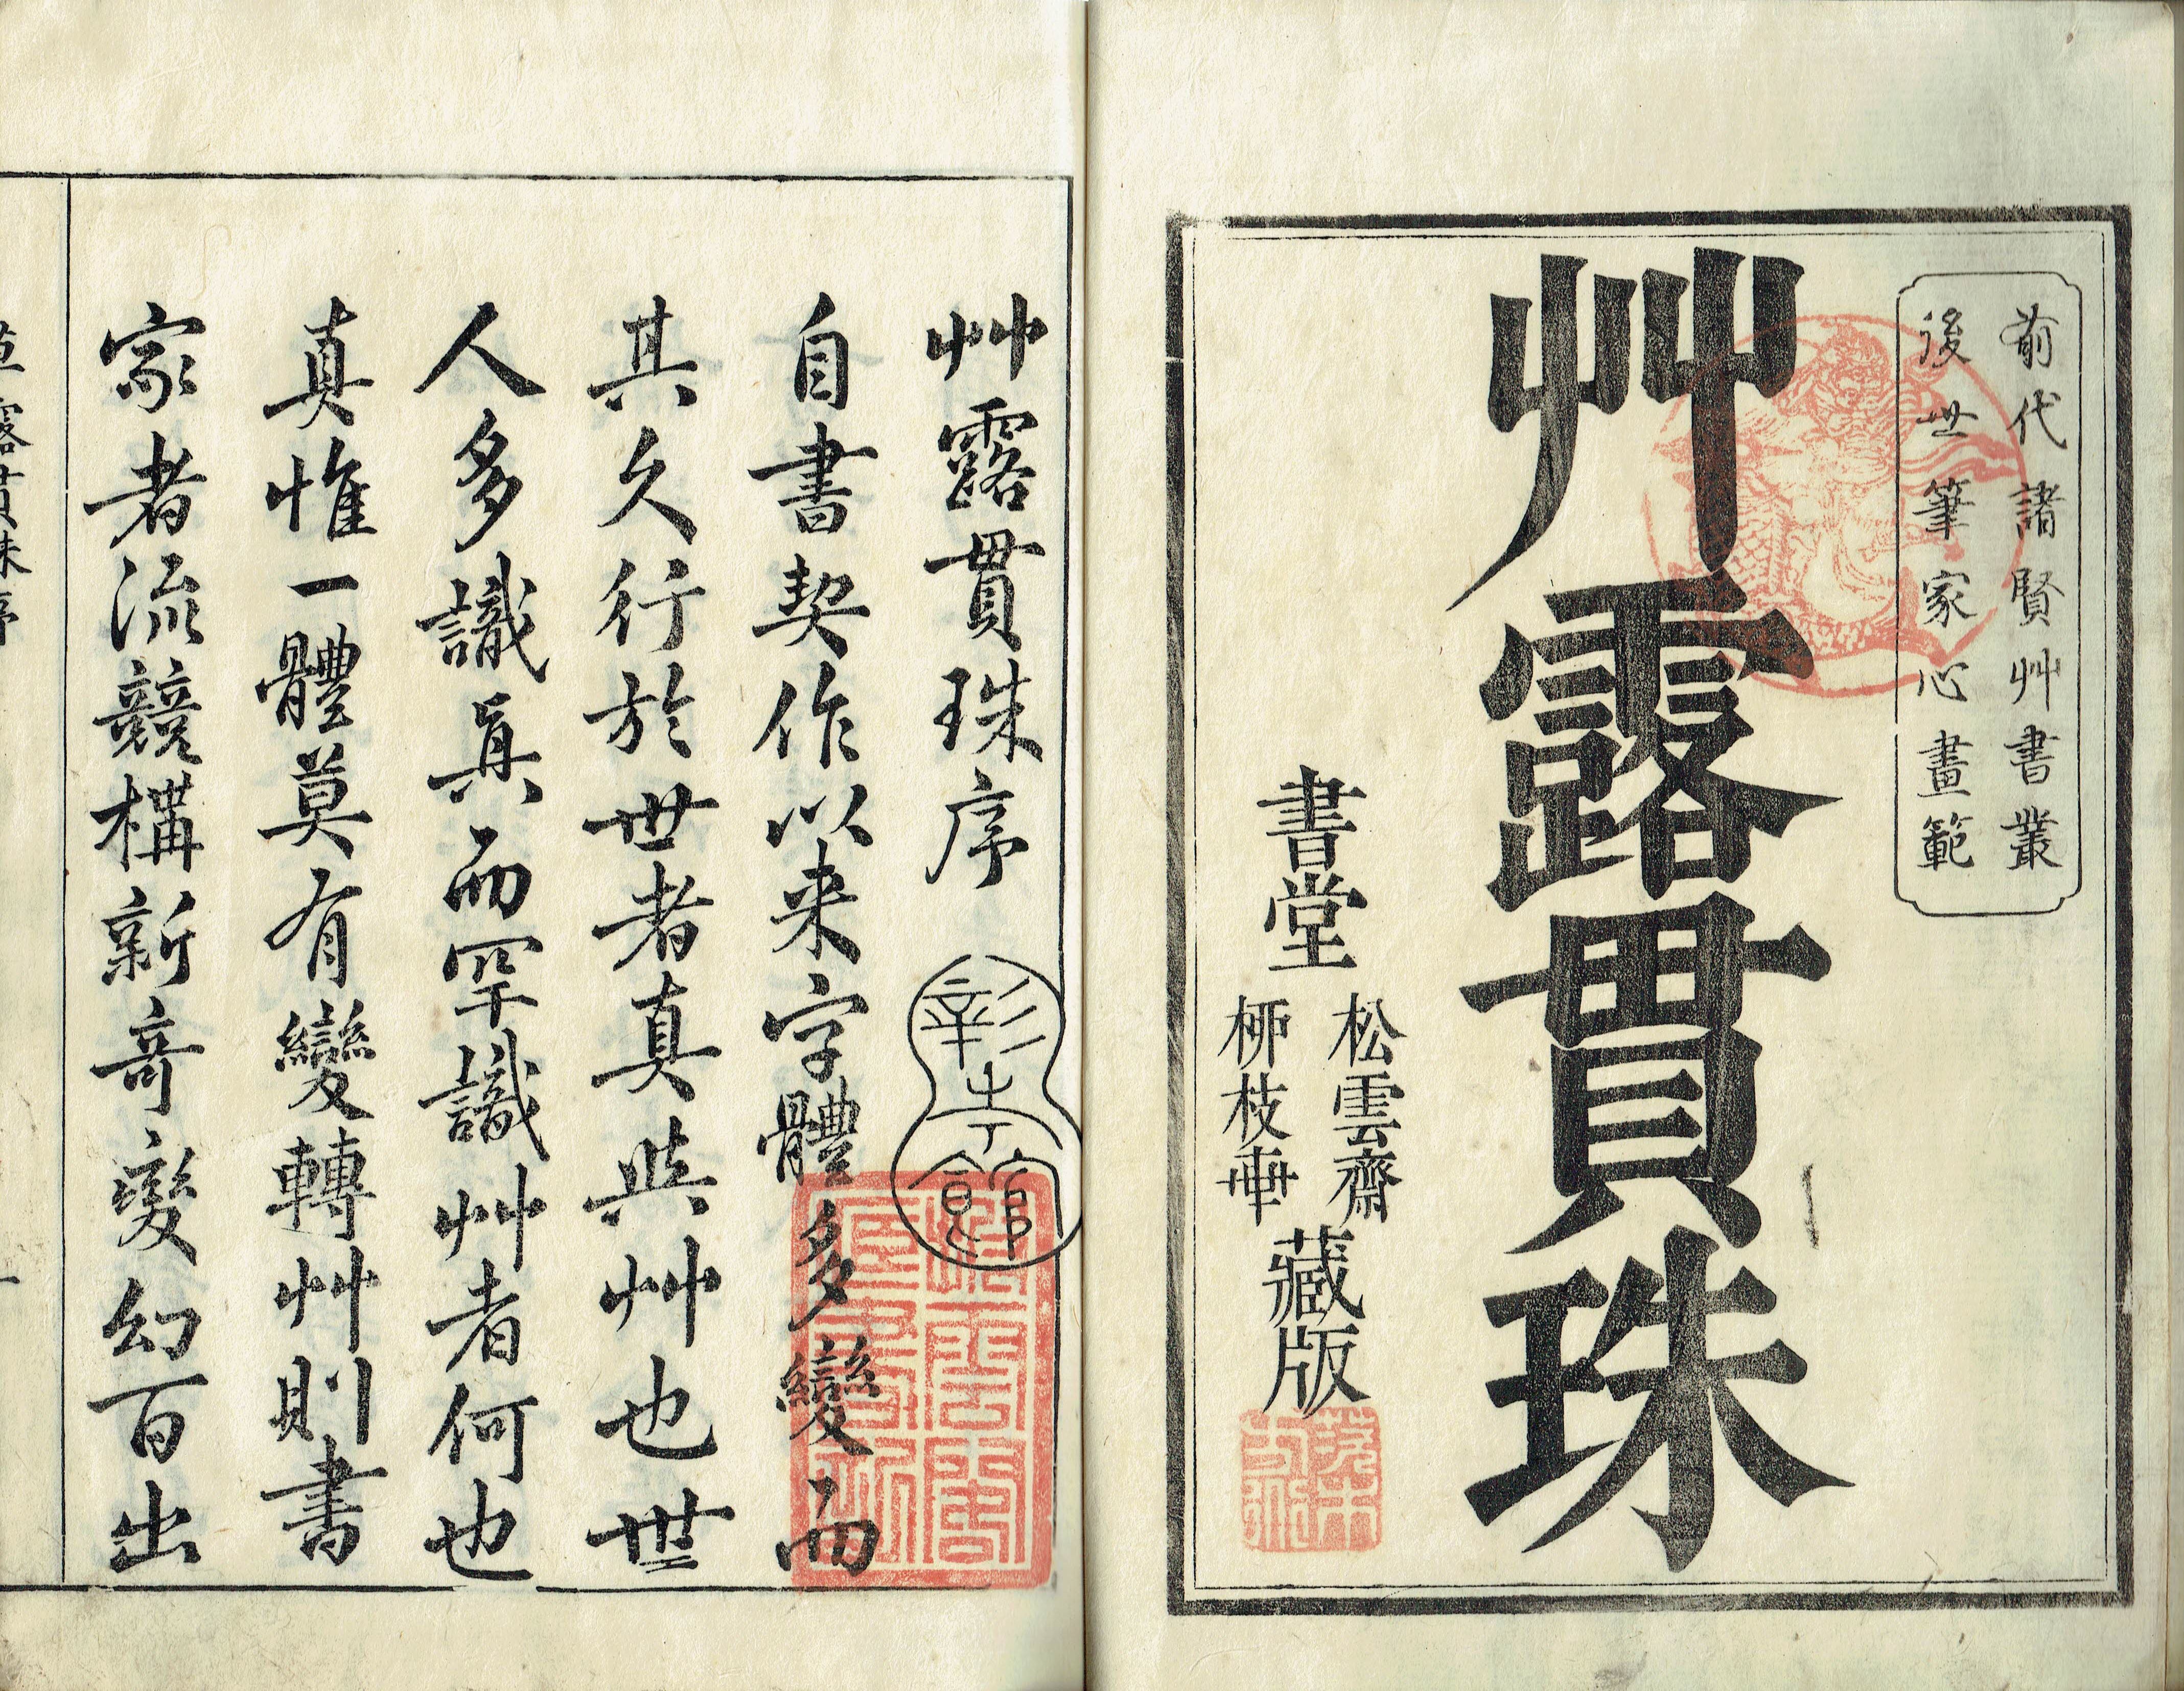 前代諸賢艸書叢
後世筆家心畫範
艸露貫珠
書堂
松雲齋
柳枝軒
藏版
艸露貫珠序
彰考館
自書契作以来字體多變而
其久行於世者真與艸也世
人多識眞而罕識艸者何也
真惟一體莫有變轉艸則書
家者流競構新奇變幻百出
露貫珠序